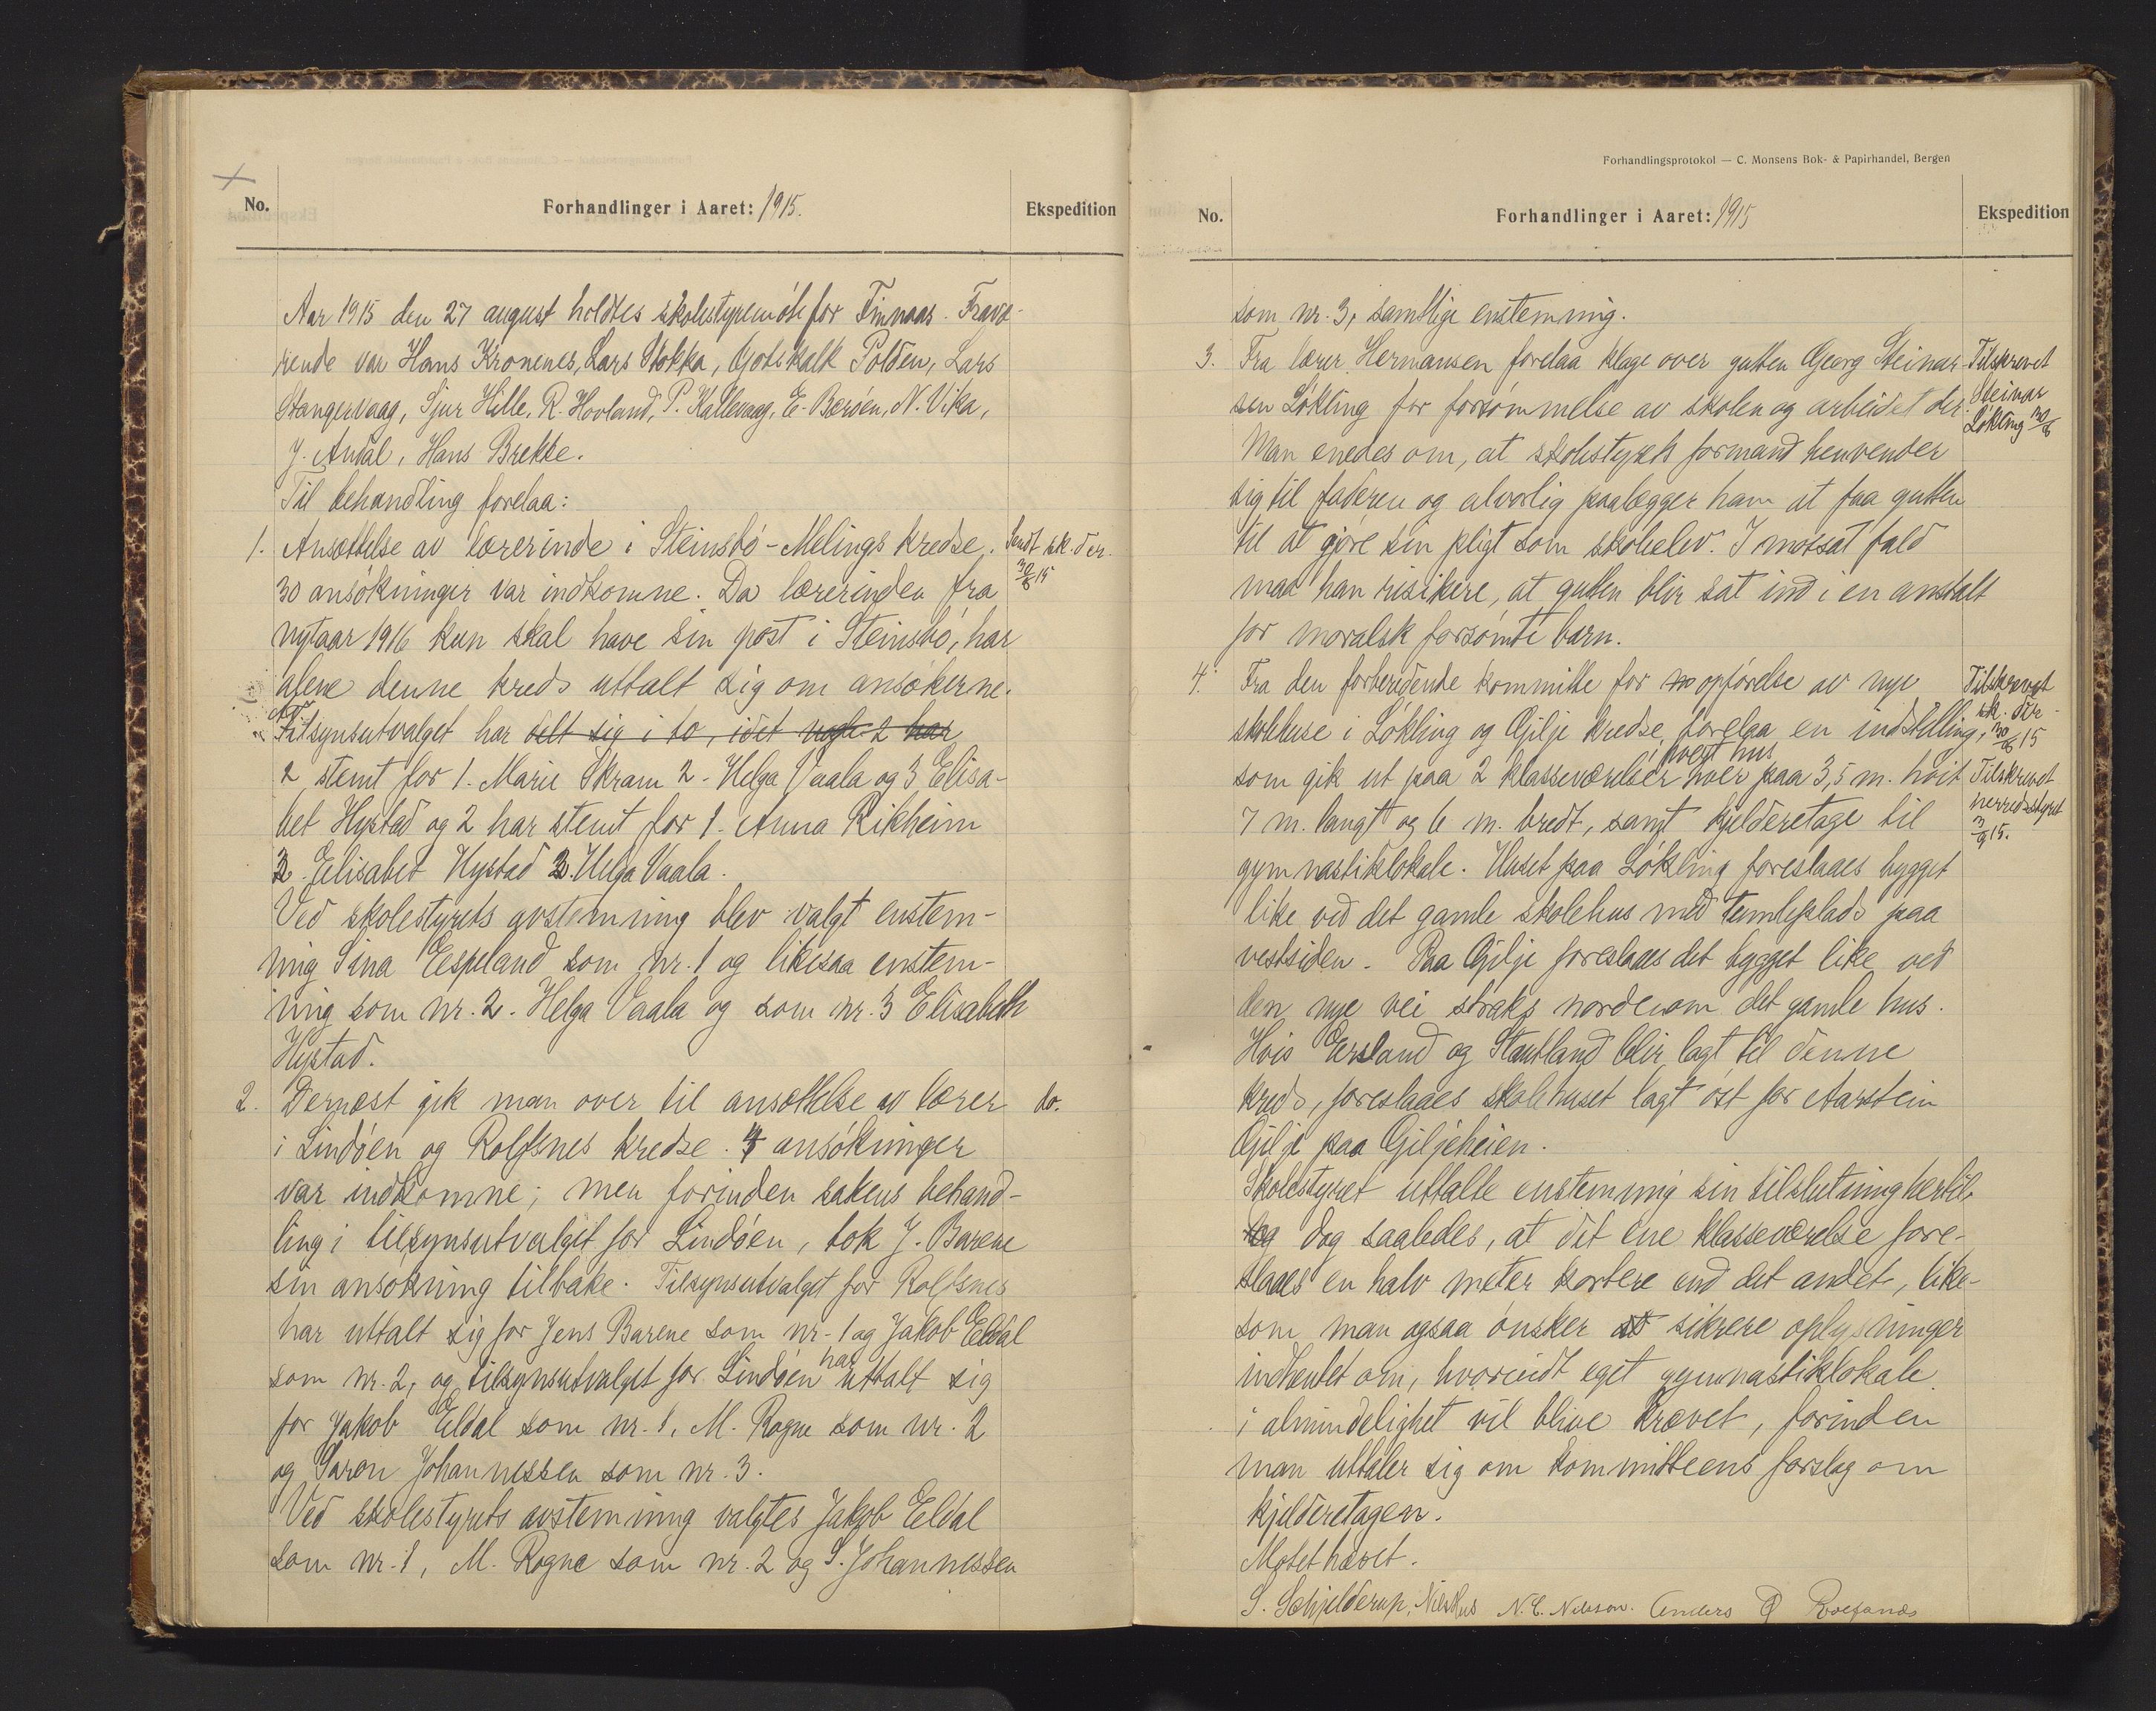 No.
Forhandlinger i Aaret: 1915.
Ekspedition
Aar 1915 den 27 august holdtes skolestyremöte for Finnaas. Fravæ-
rende var Hans Kronenes, Lars Stokka, Gotskalk Polden, Lars
Stangervaag, Sjur Hille, R. Hovland, P. Kallevaag, E. Beröen, N. Vika,
J. Andal, Hans Brekke.
Til behandling forelaa:
1. Ansættelse av lærerinde i Steinsbö-Melings kredse. Sendt sk. dir.
30 ansökninger var indkomne. Da lærerinden fra 30/8 15
nytaar 1916 kun skal have sin post i Steinsbö, har
alene denne kreds uttalt sig om ansökerne.
Tilsynsutvalget har delt sig i to, idet nogle 2 har
2 stemt for 1. Marie Skram 2. Helga Vaala og 3 Elisa-
bet Hystad og 2 har stemt for 1. Anna Rikheim
2. Elisabet Hystad 3. Helga Vaala.
Ved skolestyrets avstemning blev valgt enstem-
mig Sina Espeland som nr. 1 og likesaa enstem-
mig som nr. 2. Helga Vaala og som nr. 3 Elisabeth
Hystad.
2. Dernæst gik man over til ansættelse av lærer do.
i Lindöen og Rolfsnes kredse. 4 ansökninger
var indkomne; men forinden sakens behand-
ling i tilsynsutvalget for Lindöen, tok J. Barene
sin ansökning tilbake. Tilsynsutvalget for Rolfsnes
har uttalt sig for Jens Barene som nr. 1 og Jakob Eldal
som nr. 2, og tilsynsutvalget for Lindöen har uttalt sig
for Jakob Eldal som nr. 1, M. Rogne som nr. 2
og Søren Johannessen som nr. 3.
Ved skolestyrets avstemning valgtes Jakob Eldal
som nr. 1, M. Rogne som nr. 2 og S. Johannessen
Forhandlingsprotokol — C. Monsens Bok- & Papirhandel, Bergen
No.
Forhandlinger i Aaret: 1915
Ekspedition
som nr. 3, samtlige enstemmig.
3. Fra lærer Hermansen forelaa klage over gutten Georg Steinar- Tilskrevet
sen Lökling for forsömmelse av skolen og arbeidet der. Steinar
Lökling 30/8
Man enedes om, at skolestyrets formand henvender
sig til faderen og alvorlig paalægger ham at faa gutten
til at gjöre sin pligt som skoleelev. I motsat fald
maa han risikere, at gutten blir sat ind i en anstalt
for moralsk forsömte barn.
4. Fra den forberedende kommitte for opförelse av nye Tilskrevet
skolehuse i Lökling og Gilje kredse forelaa en indstilling, sk. dir. 30/8 15
som gik ut paa 2 klasseværelser hvert hus hver paa 3,5 m. höit Tilskrevet
7 m. langt og 6 m. bredt, samt kjelderetage til herredsstyret 3/9 15.
gymnastiklokale. Huset paa Lökling foreslaaes bygget
like ved det gamle skolehus med tumleplads paa
vestsiden. Paa Gilje foreslaaes det bygget like ved
den nye vei straks nordenom det gamle hus.
Hvis Eersland og Stautland blir lagt til denne
kreds, foreslaaes skolehuset lagt öst for Aarstein
Gilje paa Giljeheien.
Skolestyret uttalte enstemmig sin tilslutning hertil,
og dog saaledes, at det ene klasseværelse fore-
slaaes en halv meter kortere end det andet, like-
som man ogsaa önsker at sikrere oplysninger
indhentet om, hvorvidt eget gymnastiklokale
i almindelighet vil blive krævet, forinden
man uttaler sig om kommitteens forslag om
kjelderetagen.
Mötet hævet.
S. Schjelderup, Nils Hus N. C. Nilsson. Anders O Rolfsnes